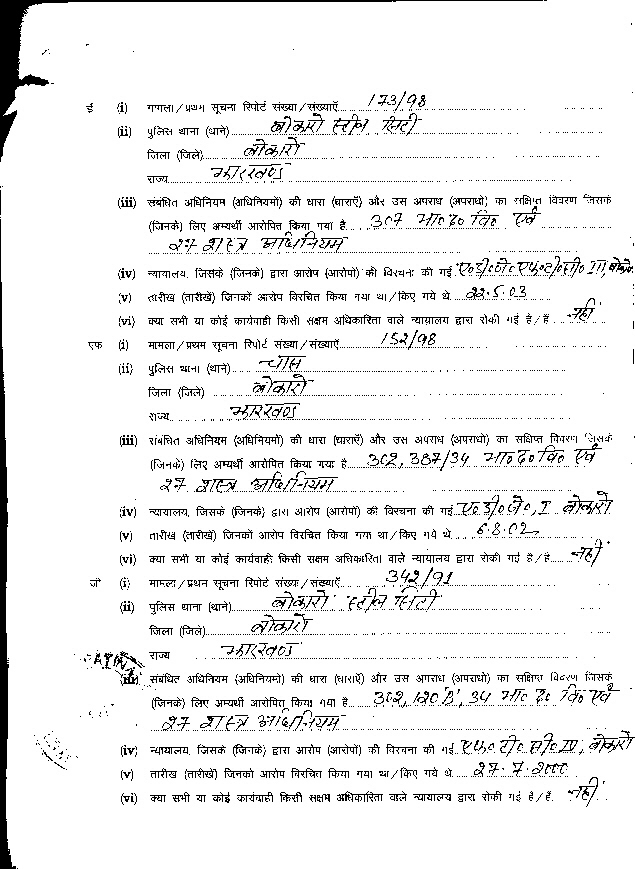 ई (i) मामला/प्रथम सूचना रिपोर्ट संख्या/संख्याएँ 173/98
(ii) पुलिस थाना (थाने) बोकारो स्टील सिटी
जिला (जिले) बोकारो
राज्य झारखण्ड
(iii) संबंधित अधिनियम (अधिनियमों) की धारा (धाराएँ) और उस अपराध (अपराधों) का संक्षिप्त विवरण जिसके
(जिनके) लिए अभ्यर्थी आरोपित किया गया है 307 भा० द० वि० एवं
27 शस्त्र अधिनियम
(iv) न्यायालय, जिसके (जिनके) द्वारा आरोप (आरोपों) की विरचना की गई ए० डी० जे० एफ० टी० सी० III, बोकारो
(v) तारीख (तारीखें) जिनको आरोप विरचित किया गया था/किए गये थे 22.5.03
(vi) क्या सभी या कोई कार्यवाही किसी सक्षम अधिकारिता वाले न्यायालय द्वारा रोकी गई है/हैं नहीं
एफ (i) मामला/प्रथम सूचना रिपोर्ट संख्या/संख्याएँ 152/98
(ii) पुलिस थाना (थाने) चास
जिला (जिले) बोकारो
राज्य झारखण्ड
(iii) संबंधित अधिनियम (अधिनियमों) की धारा (धाराएँ) और उस अपराध (अपराधों) का संक्षिप्त विवरण जिसके
(जिनके) लिए अभ्यर्थी आरोपित किया गया है 302, 387/34 भा० द० वि० एवं
27 शस्त्र अधिनियम
(iv) न्यायालय, जिसके (जिनके) द्वारा आरोप (आरोपों) की विरचना की गई ए० डी० जे०, I बोकारो
(v) तारीख (तारीखें) जिनको आरोप विरचित किया गया था/किए गये थे 6.8.02
(vi) क्या सभी या कोई कार्यवाही किसी सक्षम अधिकारिता वाले न्यायालय द्वारा रोकी गई है/हैं नहीं
जी (i) मामला/प्रथम सूचना रिपोर्ट संख्या/संख्याएँ 342/91
(ii) पुलिस थाना (थाने) बोकारो स्टील सिटी
जिला (जिले) बोकारो
राज्य झारखण्ड
(iii) संबंधित अधिनियम (अधिनियमों) की धारा (धाराएँ) और उस अपराध (अपराधों) का संक्षिप्त विवरण जिसके
(जिनके) लिए अभ्यर्थी आरोपित किया गया है 302, 120 'B', 34 भा० द० वि० एवं
27 शस्त्र अधिनियम
(iv) न्यायालय, जिसके (जिनके) द्वारा आरोप (आरोपों) की विरचना की गई एफ० टी० सी० IV, बोकारो
(v) तारीख (तारीखें) जिनको आरोप विरचित किया गया था/किए गये थे 27.7.2000
(vi) क्या सभी या कोई कार्यवाही किसी सक्षम अधिकारिता वाले न्यायालय द्वारा रोकी गई है/हैं नहीं